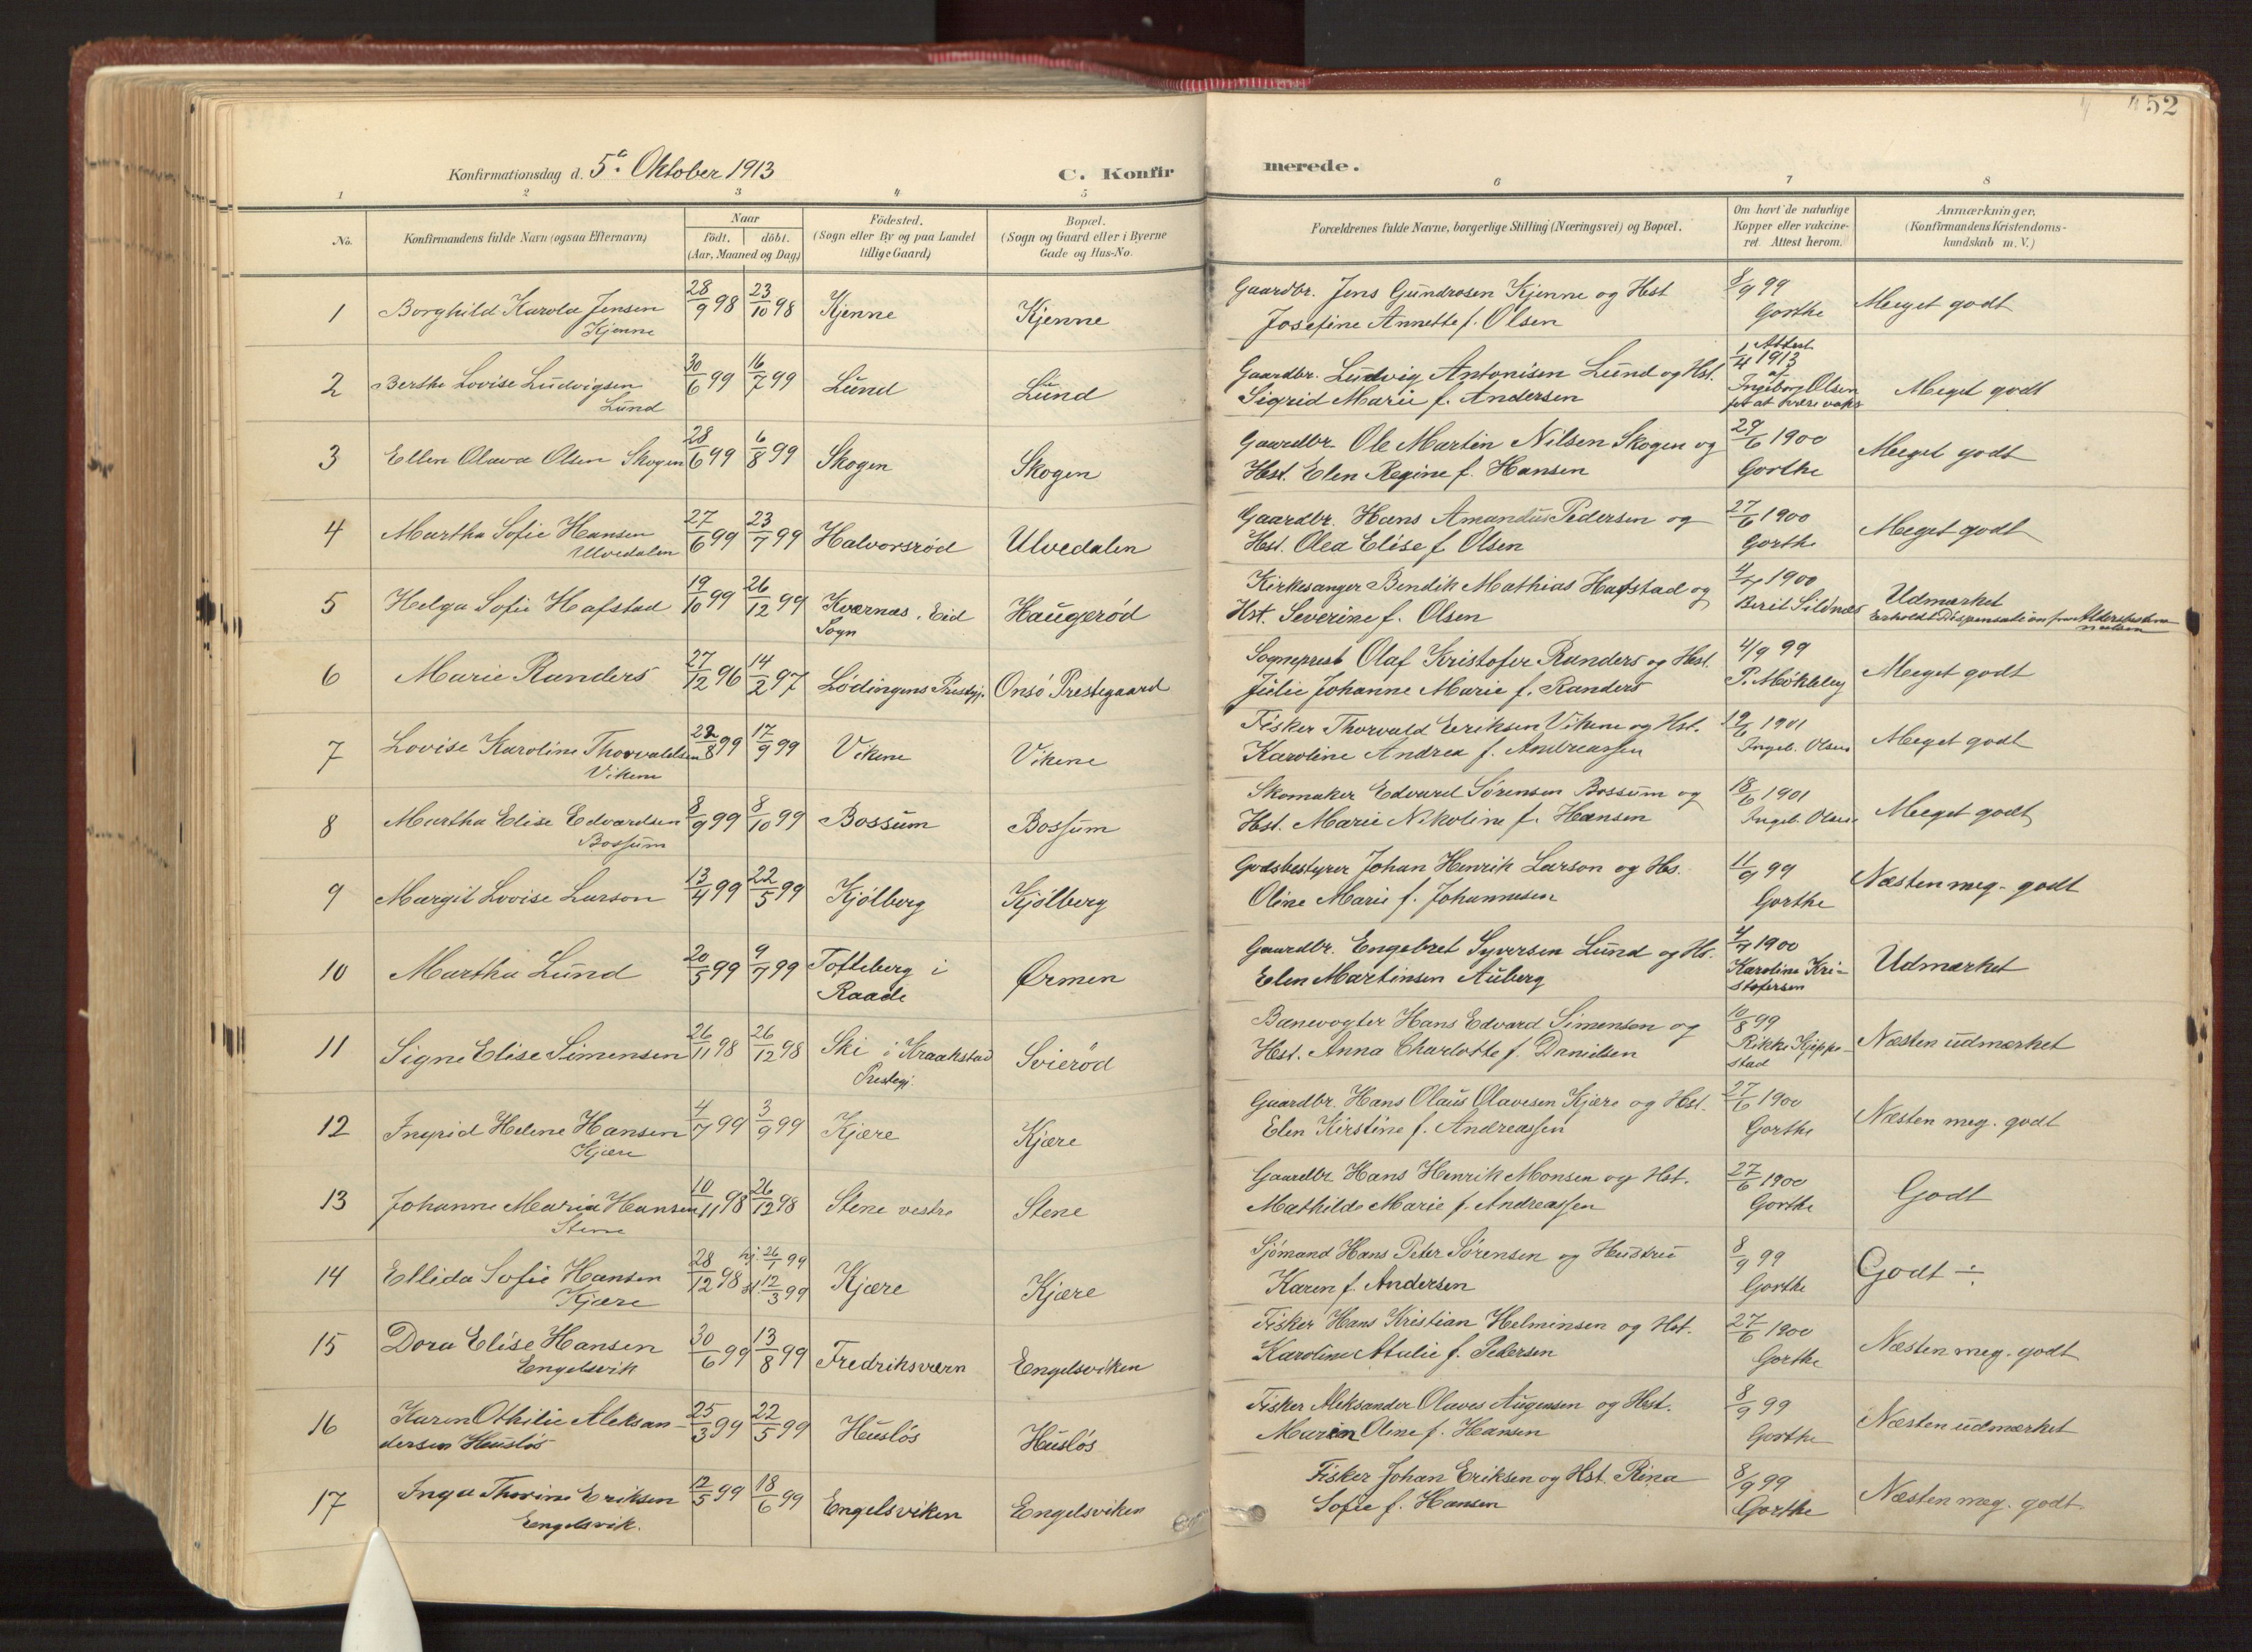 452
Konfirmationsdag d. 5te Oktober 1913
C. Konfirmerede.
1 2 3 4 5 6 7 8
No.
Konfirmandens fulde Navn (ogsaa Efternavn)
Naar
født. døbt.
(Aar, Maaned og Dag)
Fødested.
(Sogn eller By og paa Landet
tillige Gaard)
Bopæl.
(Sogn og Gaard eller i Byerne
Gade og Hus-No.
Forældrenes fulde Navne, borgerlige Stilling (Næringsvei) og Bopæl.
Om havt de naturlige
Kopper eller vakcine-
ret. Attest herom.
Anmærkninger.
(Konfirmandens Kristendoms-
kundskab m. V.)
1 Borghild Karola Jensen 28/9 98 23/10 98 Kjenne Kjenne Gaardbr. Jens Gundrosen Kjenne og Hst 8/9 99 Meget godt
Kjenne Josefine Annette f. Olsen Gorthe
2 Berthe Lovise Ludvigsen 30/6 99 16/7 99 Lund Lund Gaardbr. Ludvig Antonisen Lund og Hst. 1/4 1913 Attest Meget godt
Lund Sigrid Marie f. Andersen af Ingeborg Olsen
for at være vaks
3 Ellen Olava Olsen Skogen 28/6 99 6/8 99 Skogen Skogen Gaardbr. Ole Martin Nilsen Skogen og 29/6 1900 Meget godt
Hst. Elen Regine f. Hansen Gorthe
4 Martha Sofie Hansen 27/6 99 23/7 99 Halvorsrød Ulvedalen Gaardbr. Hans Amandus Pedersen og 27/6 1900 Meget godt
Ulvedalen Hst. Olea Elise f. Olsen Gorthe
5 Helga Sofie Hafstad 19/10 99 26/12 99 Kværnæs, Eid Haugerød Kirkesanger Bendik Mathias Hafstad og 4/7 1900 Udmærket
Sogn Hst. Severine f. Olsen Berit Sildnæs Erholdt Dispensation fra Aldersbestem
melsen
6 Marie Randers 27/12 96 14/2 97 Lødingens Prestgj. Onsø Prestegaard Sogneprest Olaf Kristofer Randers og Hst. 4/9 99 Meget godt
Julie Johanne Marie f. Randers P. Møkleby
7 Lovise Karoline Thorvaldsen 22/8 99 17/9 99 Vikene Vikene Fisker Thorvald Eriksen Vikene og Hst. 19/6 1901 Meget godt
Vikene Karoline Andrea f. Andreassen Ingeb. Olsen
8 Martha Elise Edvardsen 8/9 99 8/10 99 Bossum Bossum Skomaker Edvard Sørensen Bossum og 18/6 1901 Meget godt
Bossum Hst. Marie Nikoline f. Hansen Ingeb. Olsen
9 Margit Lovise Larson 13/4 99 22/5 99 Kjølberg Kjølberg Godsbestyrer Johan Henrik Larson og Hs. 11/9 99 Næsten meg. godt
Oline Marie f. Johannesen Gorthe
10 Martha Lund 20/5 99 9/7 99 Tofteberg i Ørmen Gaardbr. Engebret Syversen Lund og Hs. 4/7 1900 Udmærket
Raade Elen Martinsen Auberg Karoline Kri-
stofersen
11 Signe Elise Simensen 26/11 98 26/12 98 Ski i Kraakstad Svierød Banevogter Hans Edvard Simensen og 10/8 99 Næsten udmærket
Prestegj. Hst. Anna Charlotte f. Danielsen Rikke Kjeppe-
stad
12 Ingrid Helene Hansen 4/7 99 3/9 99 Kjære Kjære Gaardbr. Hans Olaus Olavesen Kjære og Hst. 27/6 1900 Næsten meg. godt
Kjære Elen Kirstine f. Andreassen Gorthe
13 Johanne Maria Hansen 10/11 98 26/12 98 Stene vestre Stene Gaardbr. Hans Henrik Monsen og Hst. 27/6 1900 Godt
Stene Mathilde Marie f. Andreassen Gorthe
14 Ellida Sofie Hansen 28/12 98 hj. 26/1 99 Kjære Kjære Sjømand Hans Peter Sørensen og Hustru 8/9 99 Godt ÷
Kjære st. 12/3 99 Karen f. Andersen Gorthe
15 Dora Elise Hansen 30/6 99 13/8 99 Fredriksværn Engelsviken Fisker Hans Kristian Helminsen og Hst. 27/6 1900 Næsten meg. godt
Engelsvik Karoline Atalie f. Pedersen Gorthe
16 Karen Othilie Aleksan- 25/3 99 22/5 99 Husløs Husløs Fisker Aleksander Olaves Augensen og Hst. 8/9 99 Næsten udmærket
dersen Husløs Maren Oline f. Hansen Gorthe
17 Inga Thorine Eriksen 12/5 99 18/6 99 Engelsviken Engelsviken Fisker Johan Eriksen og Hst. Rina 8/9 99 Næsten meg. godt
Engelsvik. Sofie f. Hansen Gorthe